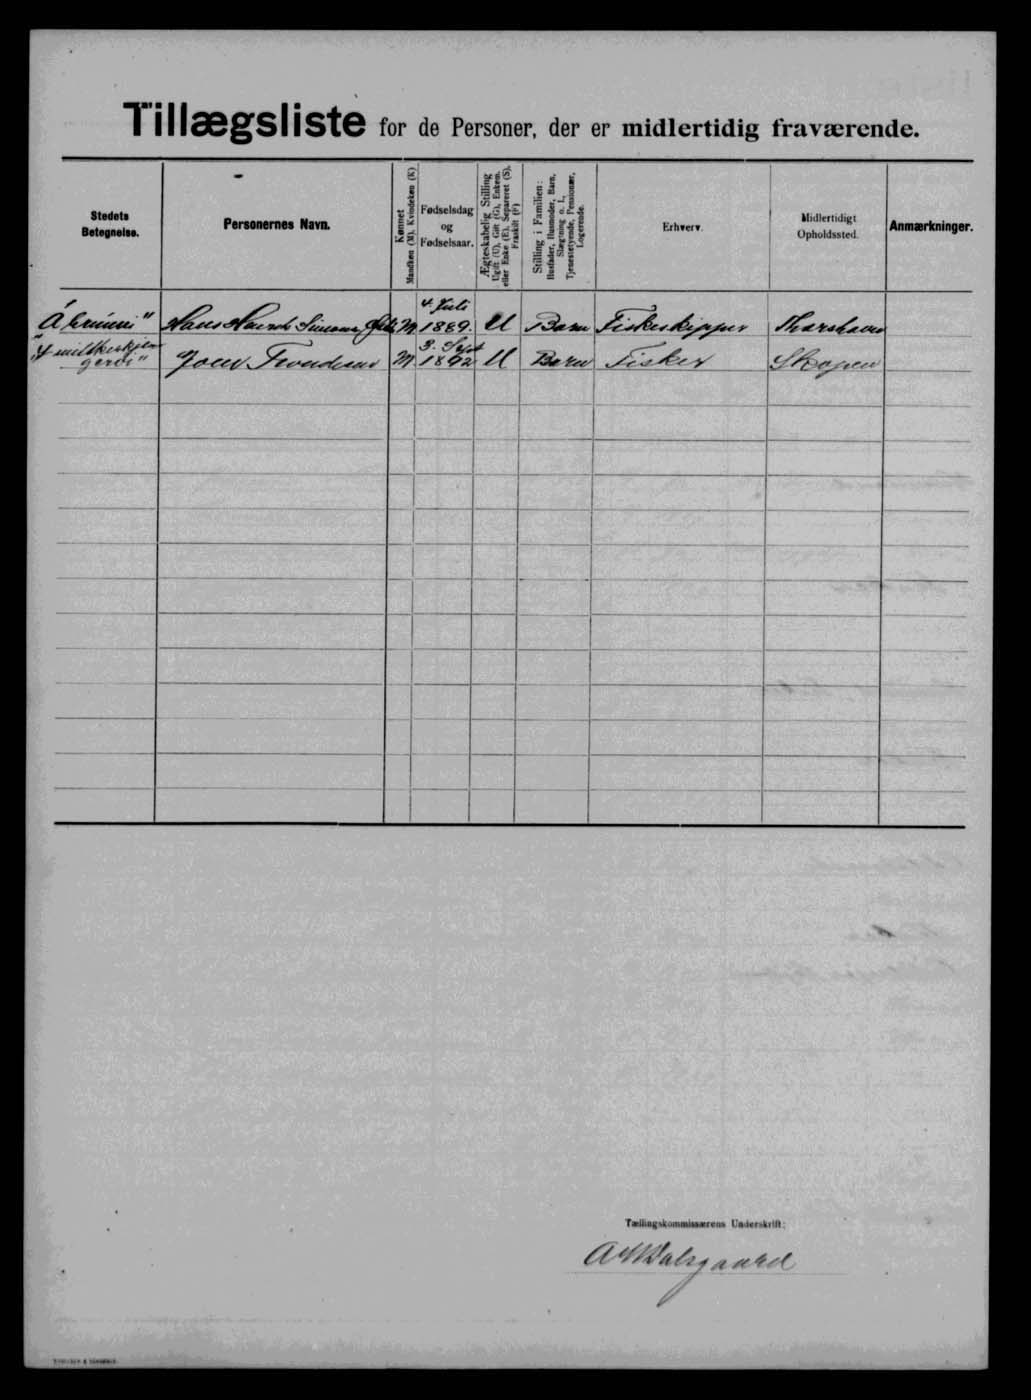 Tillægsliste for de Personer, der er midlertidig fraværende.
Stedets
Betegnelse.
Personernes Navn.
Kønnet
Mandkøn (M), Kvindekøn (K)
Fødselsdag
og
Fødselsaar.
Ægteskabelig Stilling
Ugift (U), Gift (G), Enkem.
eller Enke (E), Separeret (S),
Fraskilt (F)
Stilling i Familien:
Husfader, Husmoder, Barn,
Slægtning o. l.,
Tjenestetyende, Pensionær,
Logerende.
Erhverv.
Midlertidigt
Opholdssted.
Anmærkninger.
4. Juli
Hans Simons M 1889. U Barn Fiskeskipper Thorshavn
3. Sept
gerdi" M 1892 U Barn Fisker Skopen
Tællingskommissærens Underskrift:
Dalsgaard